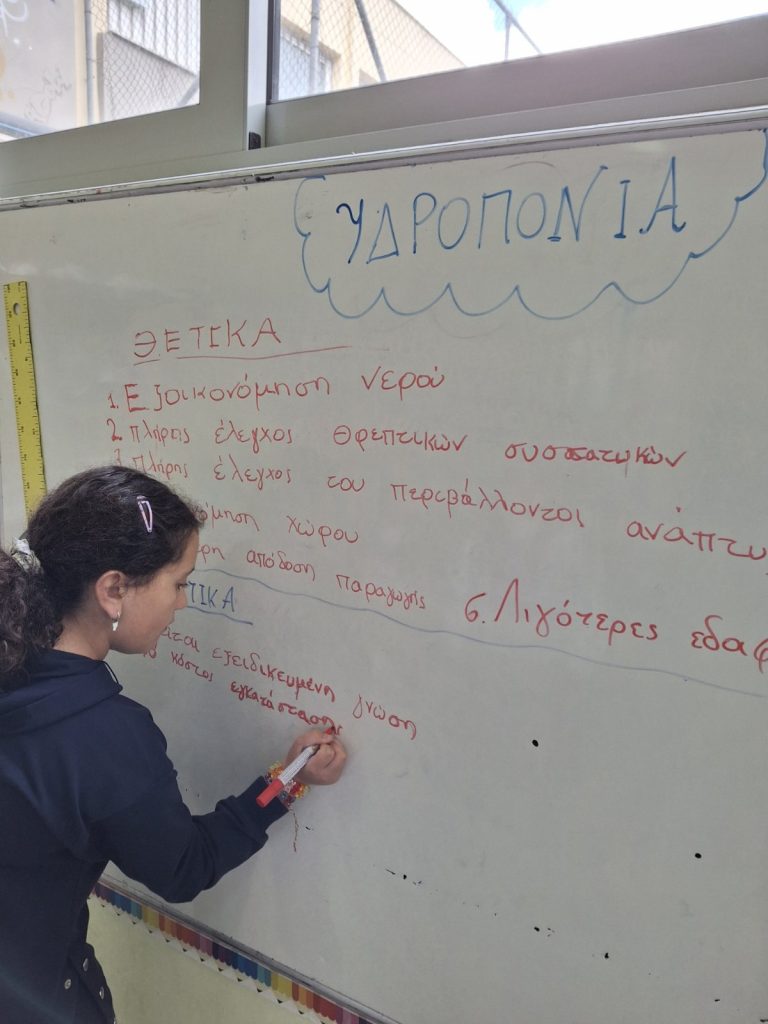 ΥΔΡΟΠΟΝΙΑ
ΘΕΤΙΚΑ
1. Εξοικονόμηση νερού
2. πλήρης έλεγχος θρεπτικών συστατικών
πλήρης έλεγχος του περιβάλλοντος ανάπτυ
όμηση χώρου
ρη απόδοση παραγωγής 6. Λιγότερες εδαφ
ΤΙΚΑ
εξειδικευμένη γνώση
κόστος εγκατάστασης